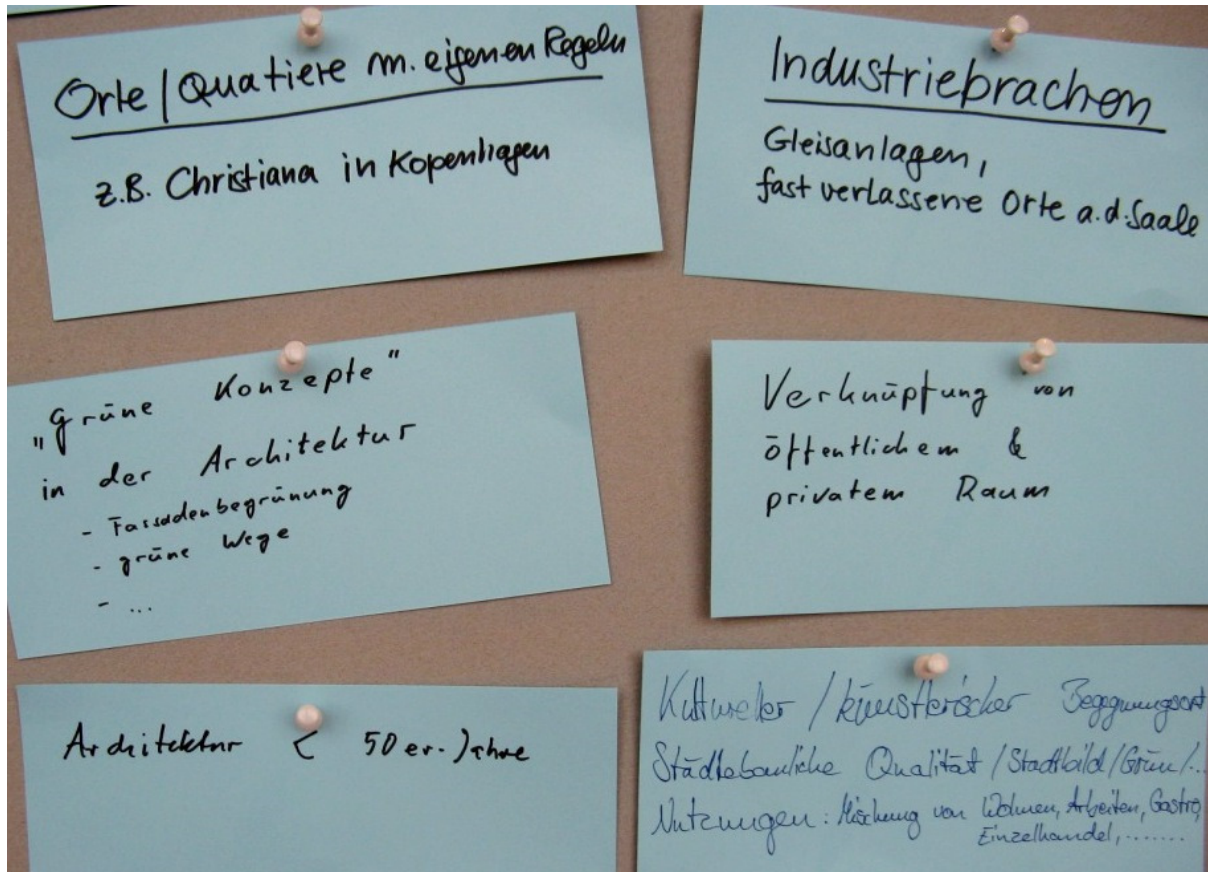 Orte / Quatiere m. eigenen Regeln
z.B. Christiana in Kopenhagen
Industriebrachen
Gleisanlagen,
fast verlassene Orte a.d. Saale
"grüne Konzepte"
in der Architektur
- Fassadenbegrünung
- grüne Wege
- ...
Verknüpfung von
öffentlichem &
privatem Raum
Architektur < 50er-Jahre
Kultureller / künstlerischer Begegnungsort
Städtebauliche Qualität / Stadtbild / Grün / ...
Nutzungen: Mischung von Wohnen, Arbeiten, Gastro,
Einzelhandel, ........